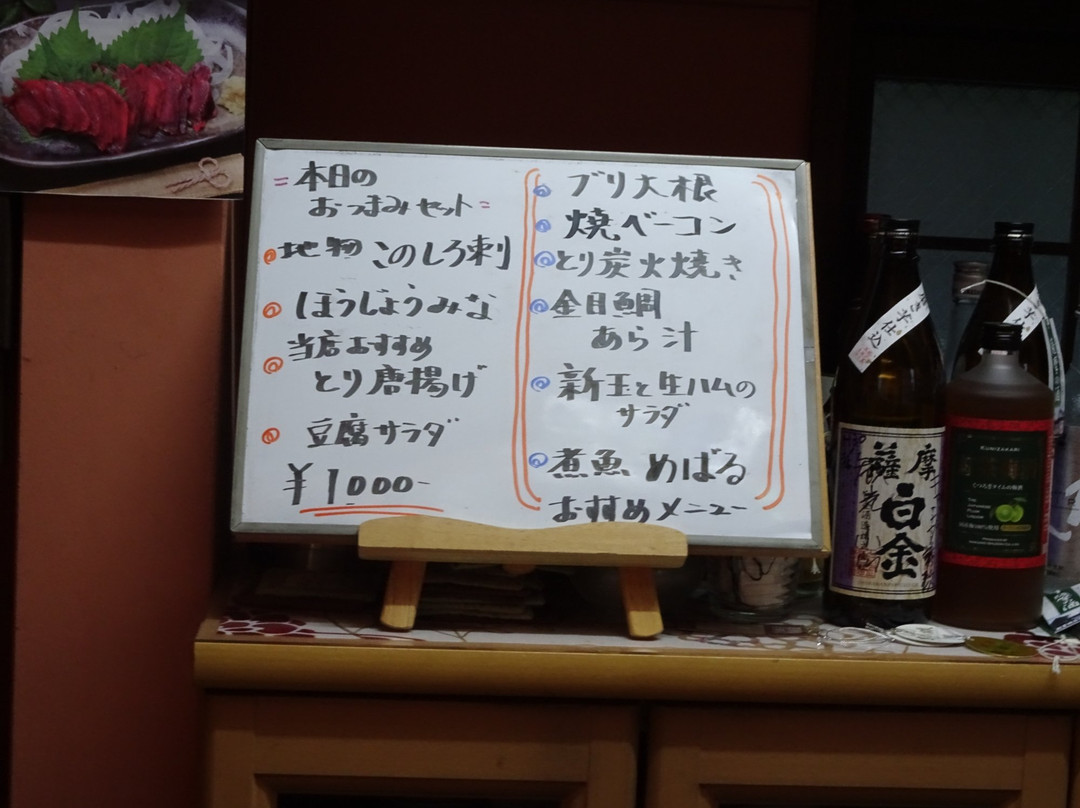 =本日の
おつまみセット=
地物 このしろ刺
ほうじょうみな
当店おすすめ
とり唐揚げ
豆腐サラダ
¥1000-
ブリ大根
焼ベーコン
とり炭火焼き
金目鯛
あら汁
新玉と生ハムの
サラダ
煮魚 めばる
おすすめメニュー
芋仕込
薩摩
白金
KUNIZAKARI